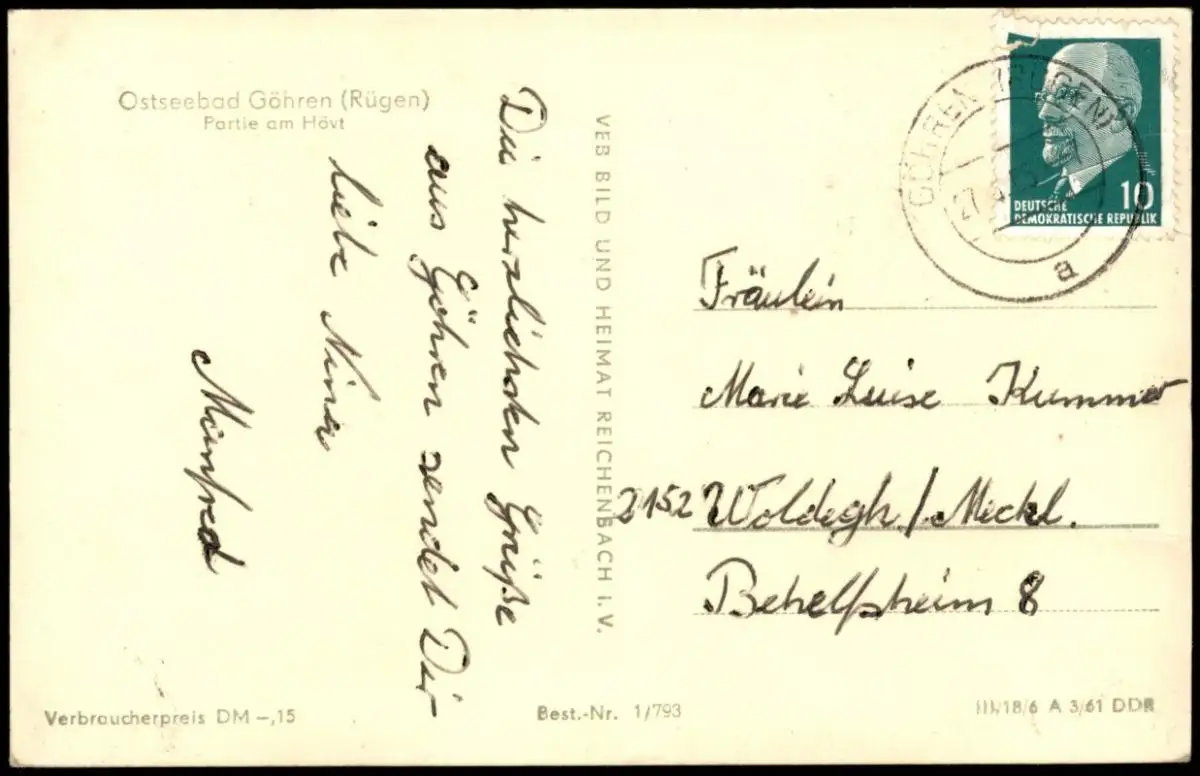 Ostseebad Göhren (Rügen)
Partie am Hövt
Die herzlichsten Grüße
aus Göhren sendet Dir
liebe Nina
Manfred
VEB BILD UND HEIMAT REICHENBACH I. V.
GÖHREN (RÜGEN)
27.
a
10
DEUTSCHE
DEMOKRATISCHE REPUBLIK
Fräulein
Marie Luise Kummer
2152 Woldegk/Meckl.
Behelfsheim 8
Verbraucherpreis DM -,15
Best.-Nr. 1/793
III/18/6 A 3/61 DDR